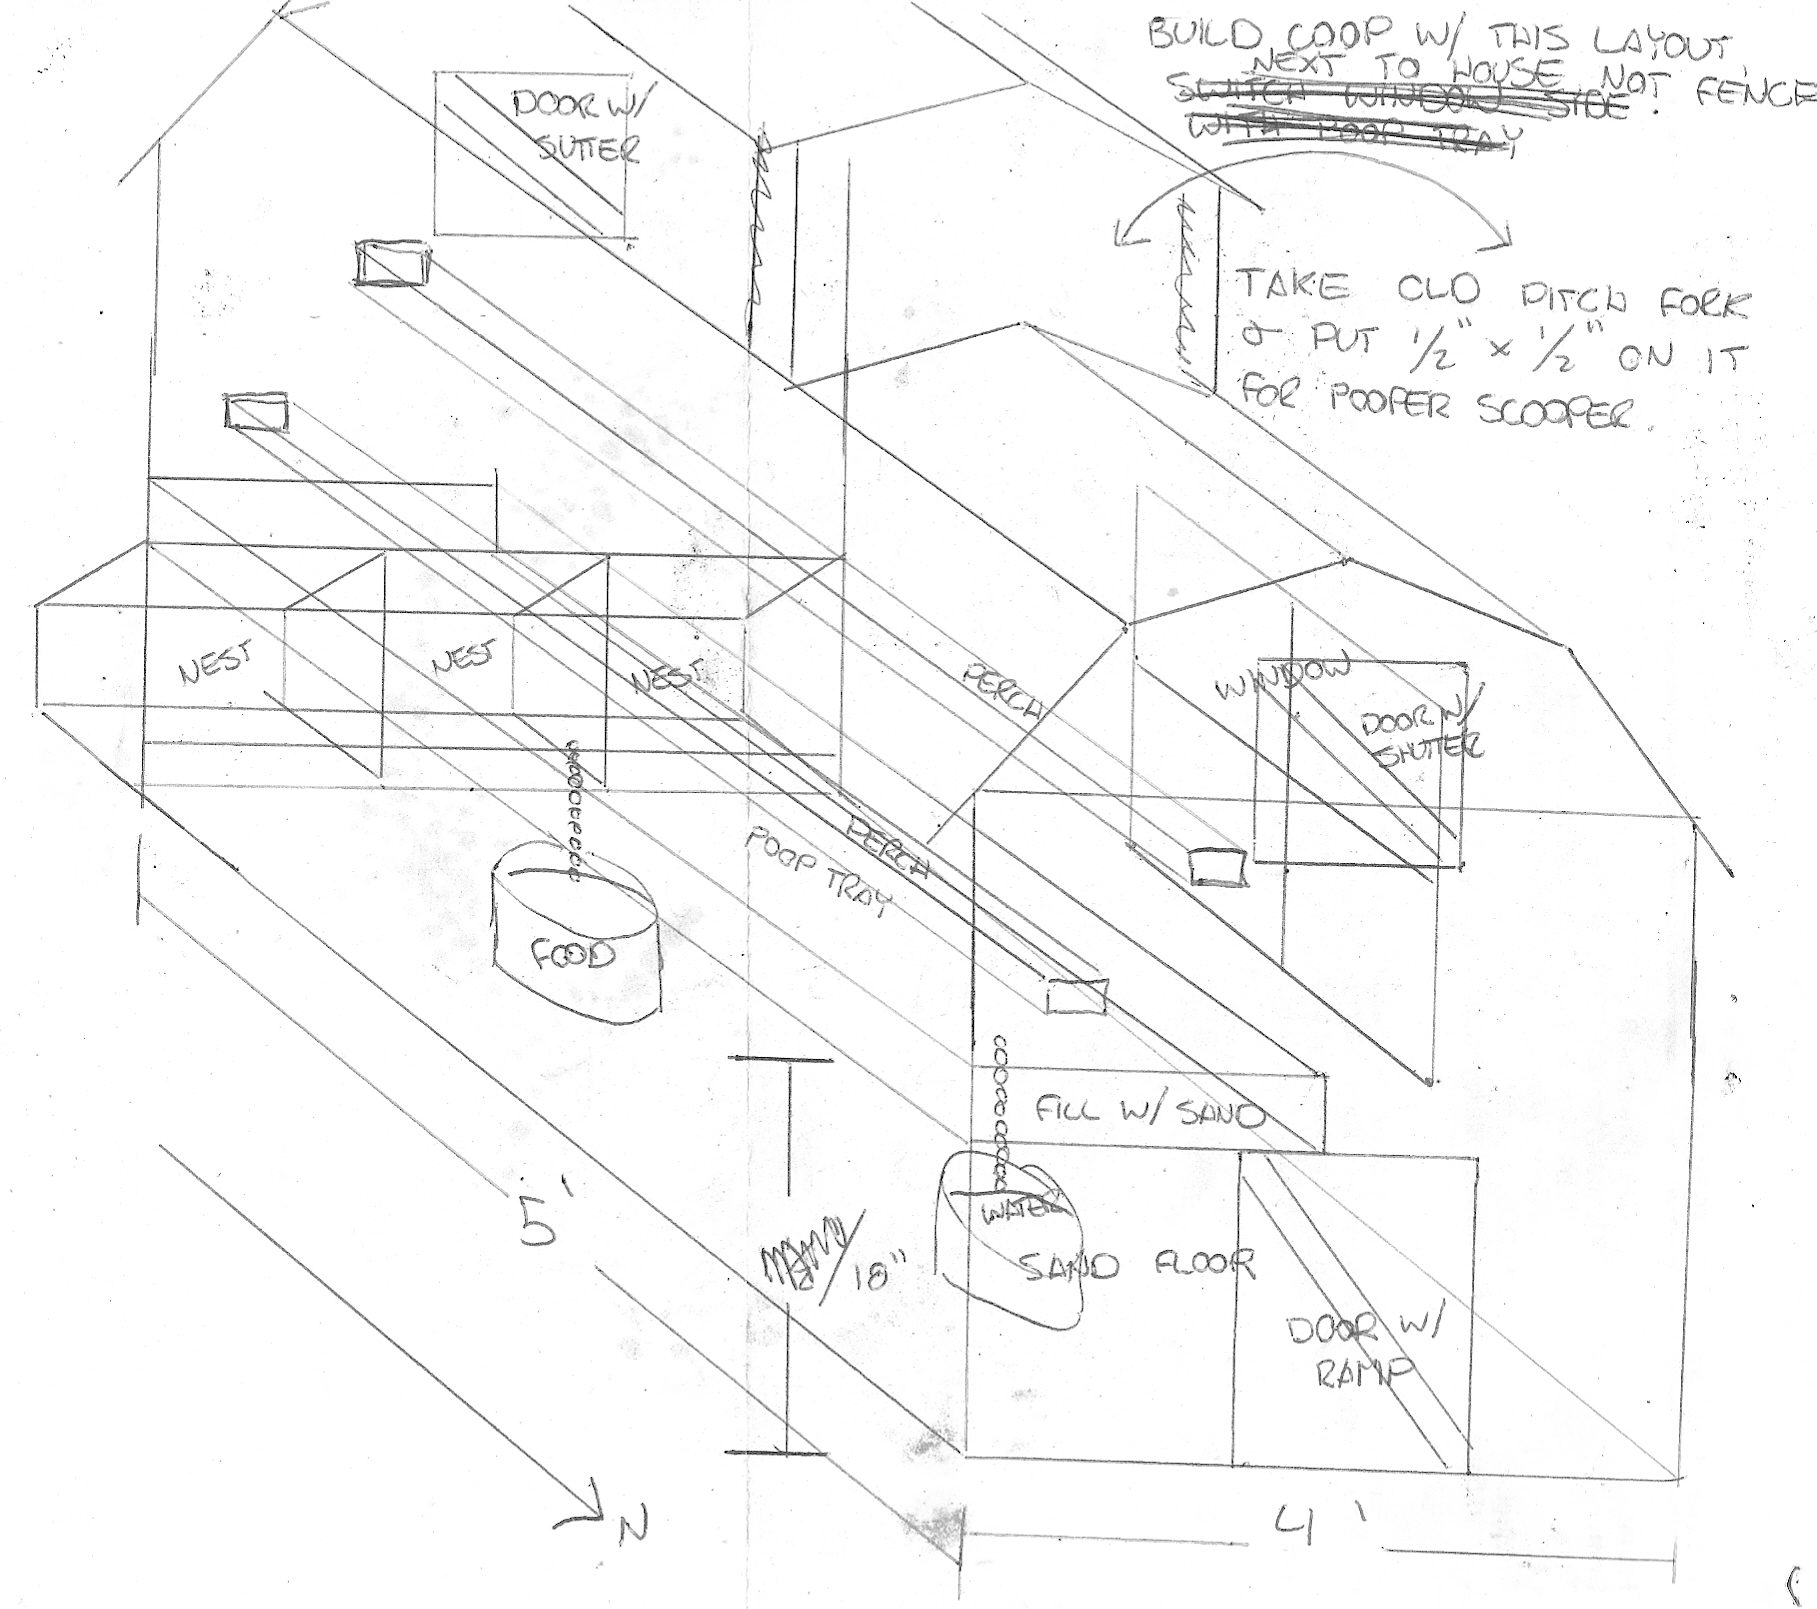 BUILD COOP W/ THIS LAYOUT,
NEXT TO HOUSE NOT FENCE.
SWITCH WINDOW SIDE
WITH POOP TRAY
DOOR W/
SUTTER
TAKE OLD PITCH FORK
& PUT 1/2" x 1/2" ON IT
FOR POOPER SCOOPER.
NEST
NEST
NEST
PERCH
WINDOW
DOOR W/
SHUTTER
PERCH
POOP TRAY
FOOD
FILL W/ SAND
WATER
SAND FLOOR
DOOR W/
RAMP
5'
18"
N
4'